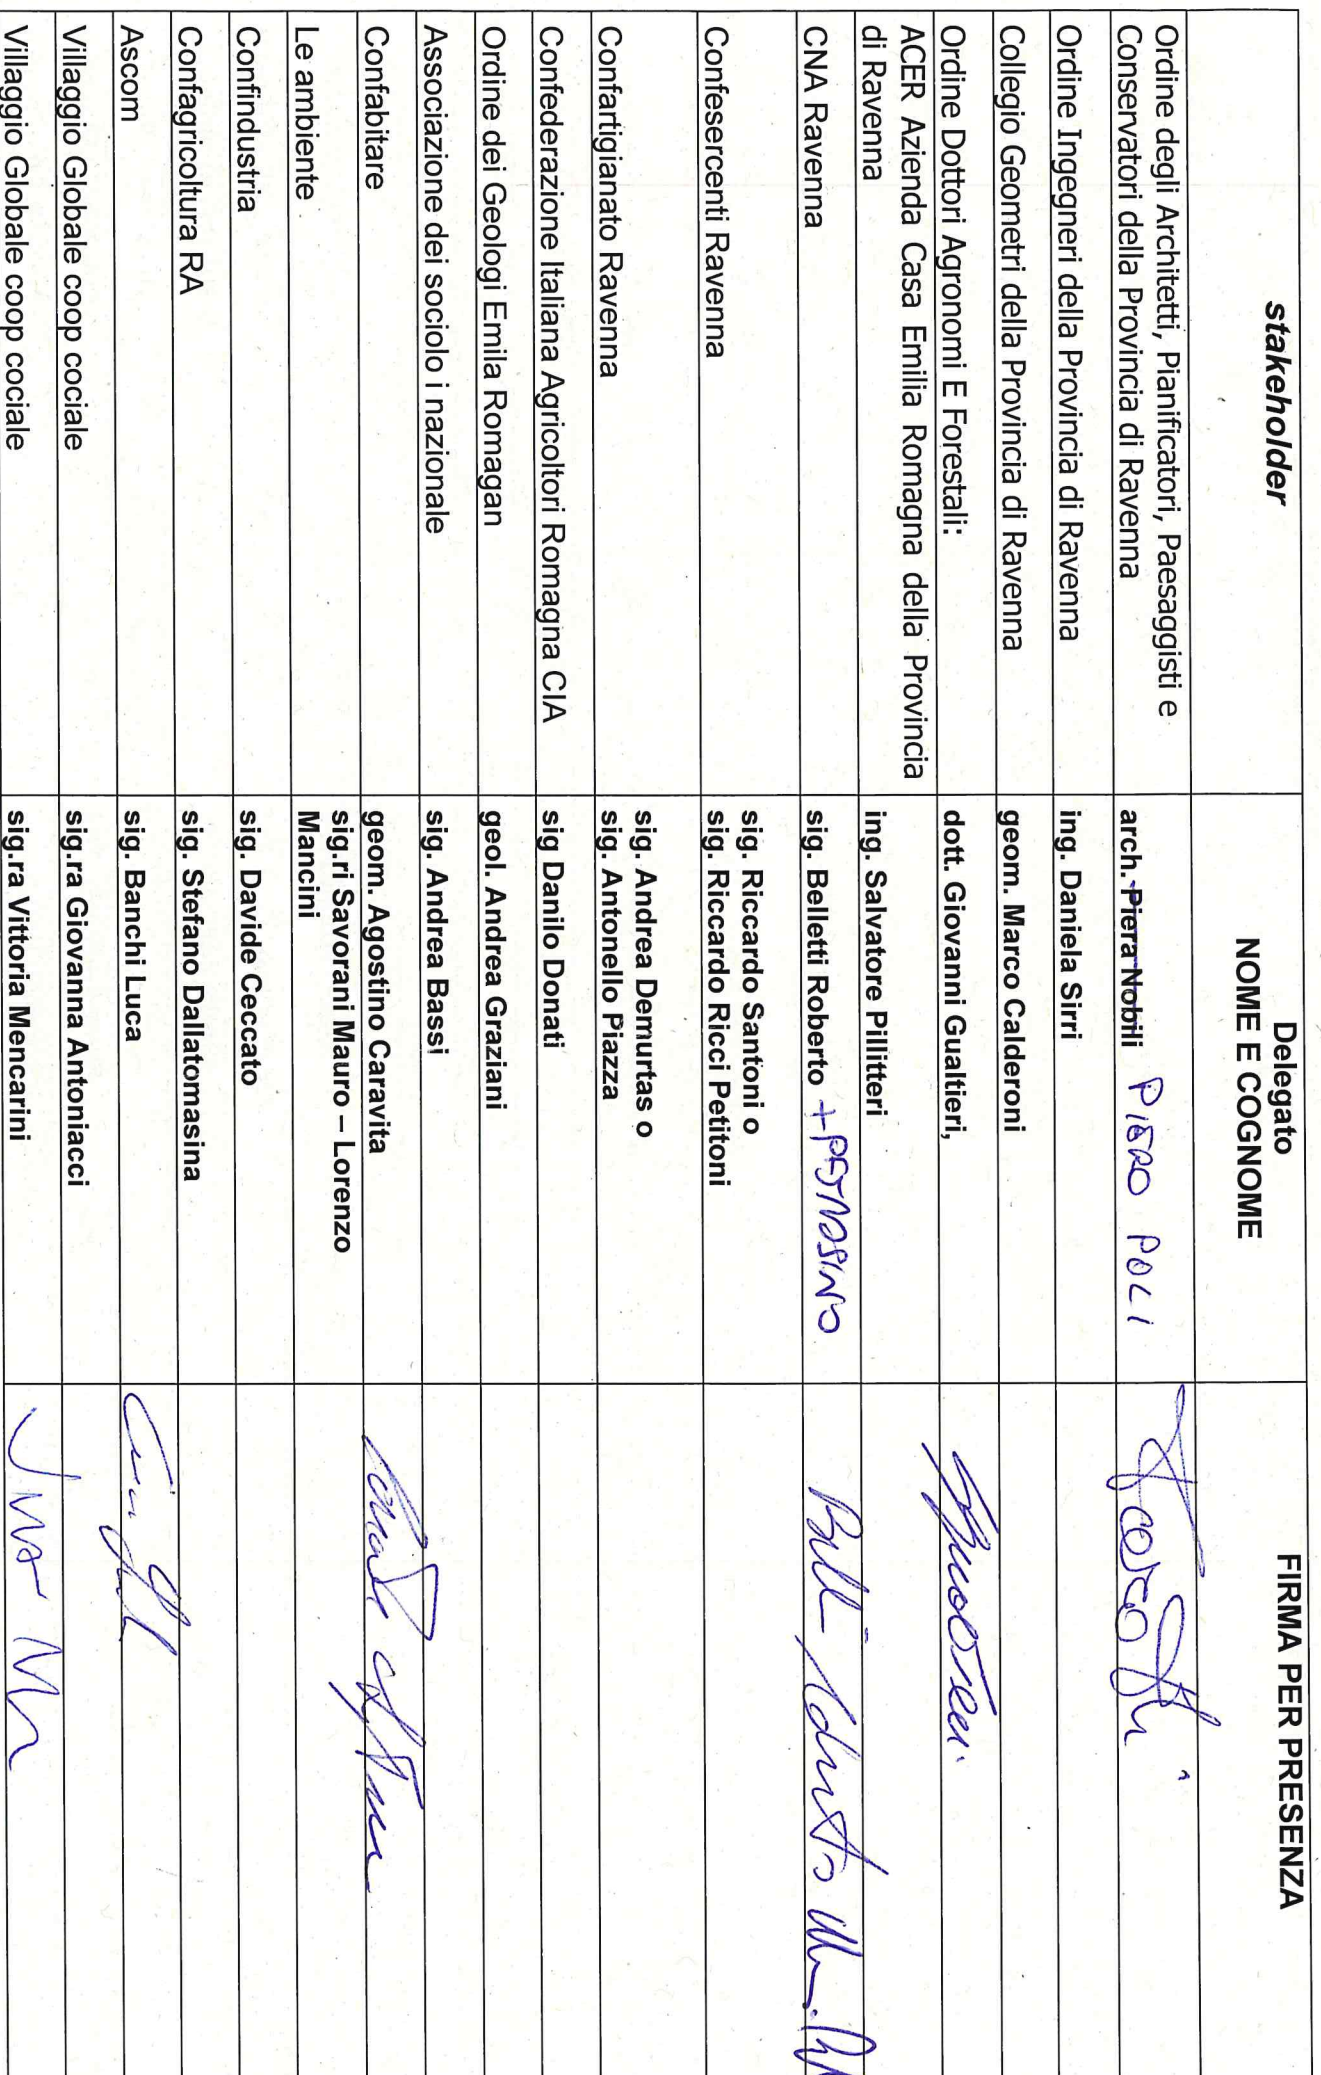 stakeholder
Delegato
NOME E COGNOME
FIRMA PER PRESENZA
Ordine degli Architetti, Pianificatori, Paesaggisti e
Conservatori della Provincia di Ravenna
arch. Piera Nobili PIERO POLI
Ordine Ingegneri della Provincia di Ravenna
ing. Daniela Sirri
Collegio Geometri della Provincia di Ravenna
geom. Marco Calderoni
Ordine Dottori Agronomi E Forestali:
dott. Giovanni Gualtieri,
ACER Azienda Casa Emilia Romagna della Provincia
di Ravenna
ing. Salvatore Pillitteri
CNA Ravenna
sig. Belletti Roberto +
Confesercenti Ravenna
sig. Riccardo Santoni o
sig. Riccardo Ricci Petitoni
Confartigianato Ravenna
sig. Andrea Demurtas o
sig. Antonello Piazza
Confederazione Italiana Agricoltori Romagna CIA
sig Danilo Donati
Ordine dei Geologi Emila Romagan
geol. Andrea Graziani
Associazione dei sociolo i nazionale
sig. Andrea Bassi
Confabitare
geom. Agostino Caravita
Le ambiente
sig.ri Savorani Mauro – Lorenzo
Mancini
Confindustria
sig. Davide Ceccato
Confagricoltura RA
sig. Stefano Dallatomasina
Ascom
sig. Banchi Luca
Villaggio Globale coop cociale
sig.ra Giovanna Antoniacci
Villaggio Globale coop cociale
sig.ra Vittoria Mencarini